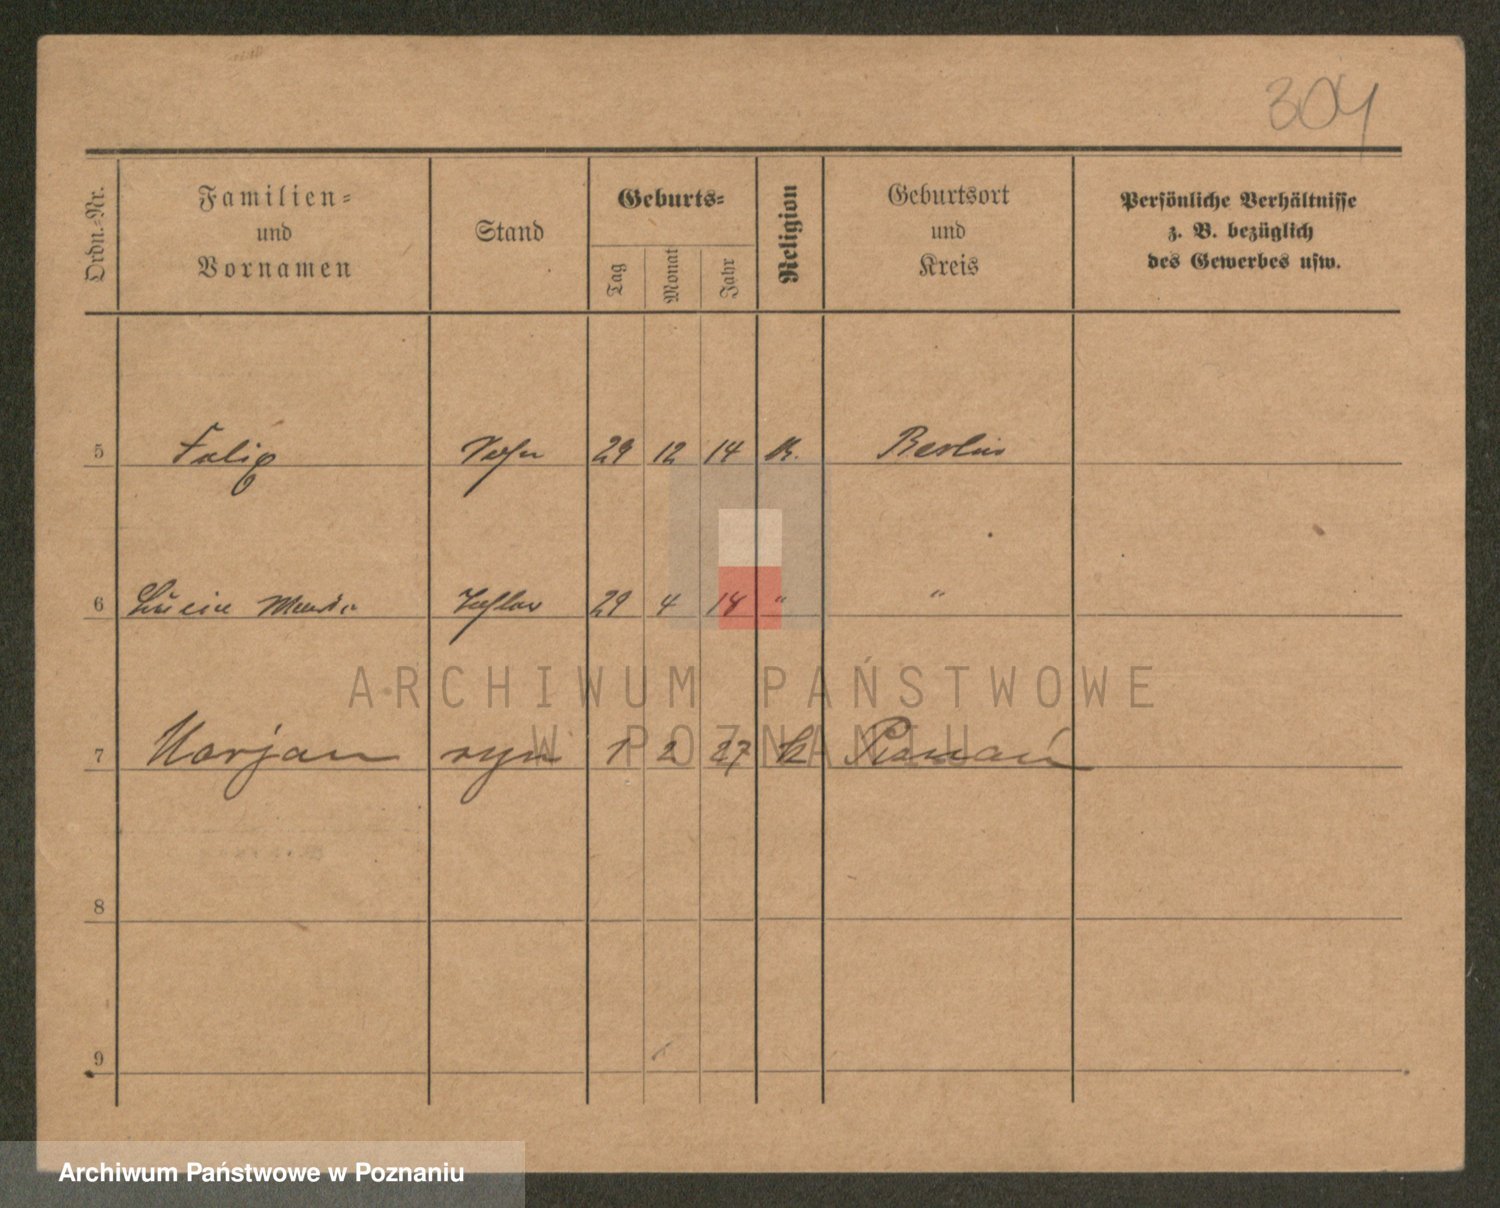 304
Ordn.-Nr.
Familien-
und
Vornamen
Stand
Geburts-
Tag
Monat
Jahr
Religion
Geburtsort
und
Kreis
Persönliche Verhältnisse
z. B. bezüglich
des Gewerbes usw.
5 Felix Sohn 29 12 14 K. Berlin
6 Lucie Tochter 29 4 18 " "
7 Marjan syn 1 2 27 k Poznań
8
9
ARCHIWUM PAŃSTWOWE
W POZNANIU
Archiwum Państwowe w Poznaniu